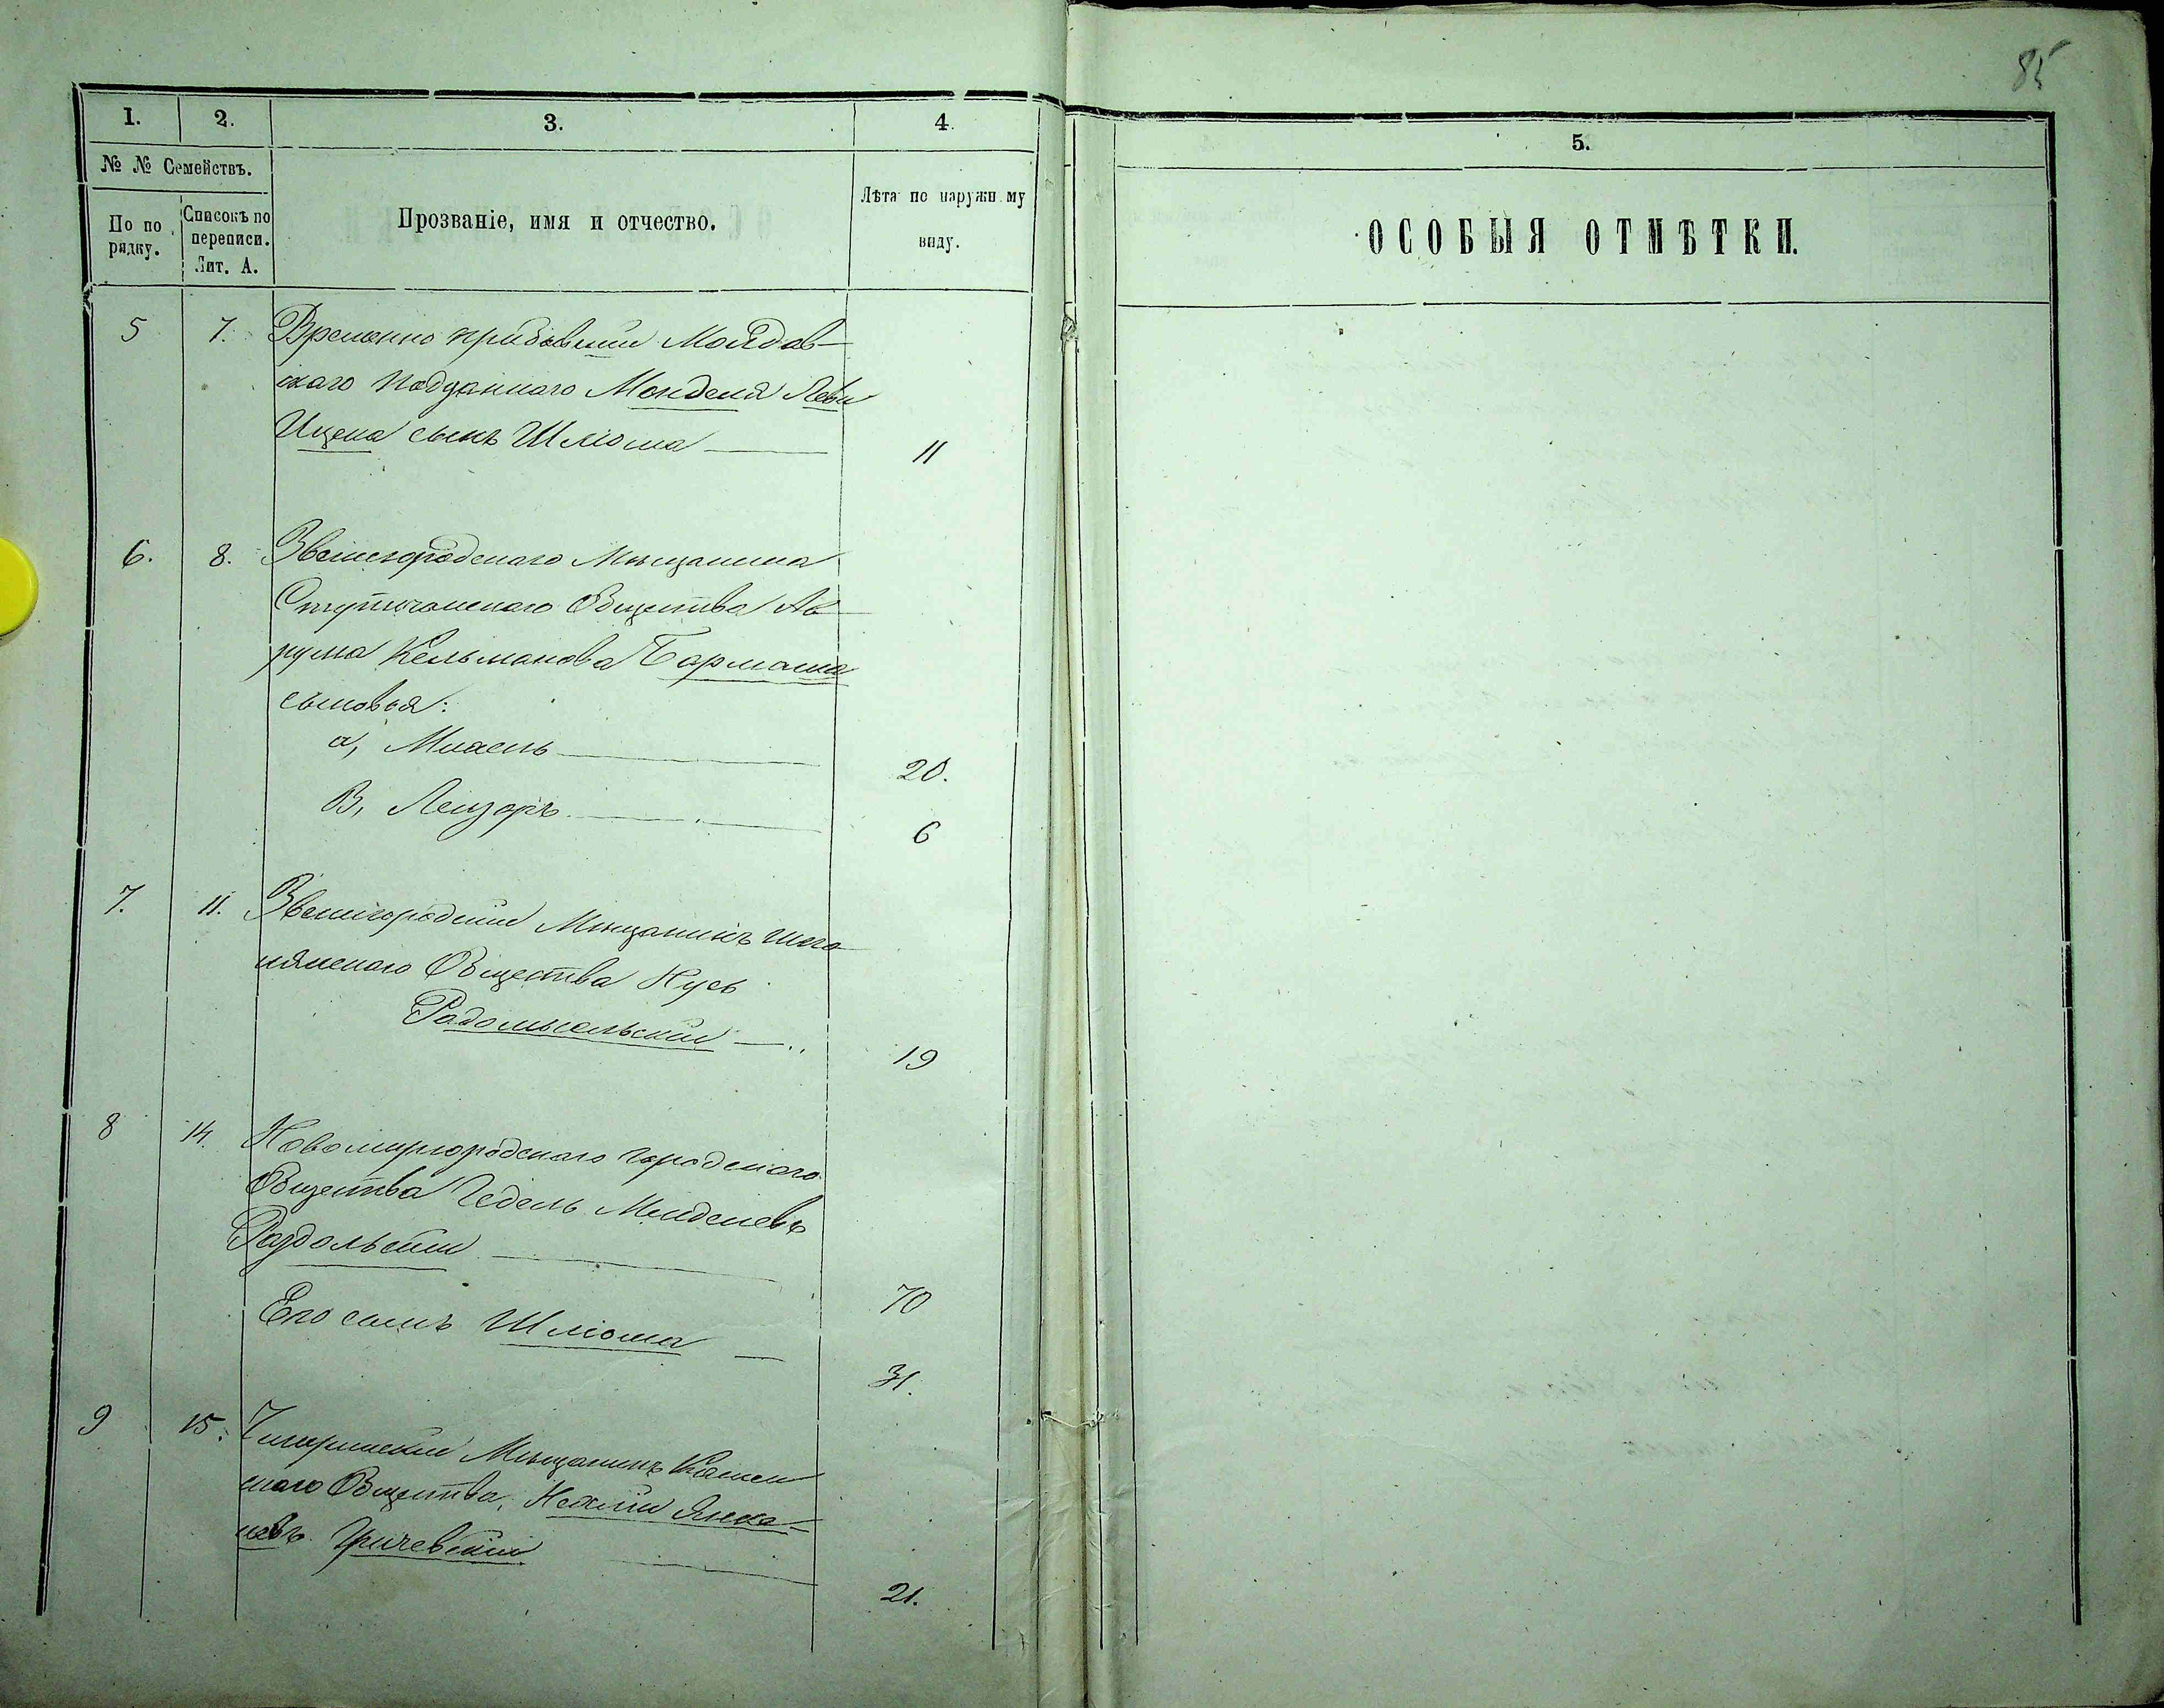 85
1.
2.
3.
4.
5.
№ № Семействъ.
По по
рядку.
Списокъ по
переписи.
Лит. А.
Прозваніе, имя и отчество.
Лѣта по наружн му
виду.
ОСОБЫЯ ОТМѢТКИ.
5 7. Временно прибывшій Молдав-
скаго подданнаго Менделя Леви
Ицека сынъ Шлiома 11
6. 8. Звенигородскаго Мѣщанина
Общества Ав
рума Кельманова Бармаша
сыновья:
а, 20.
В, Лейзоръ 6
7. 11. Звенигородскій Мѣщанинъ Шпо
лянскаго Общества Нусь
Радомысельскій 19
8 14. Новомиргородскаго городскаго
Общества Гедель Менделевъ
Раздольскій 70
Его сынъ Шлiома 31.
9 15. Чигиринскій Мѣщанинъ Камен
скаго Общества, Янке-
левъ Гричевскій 21.